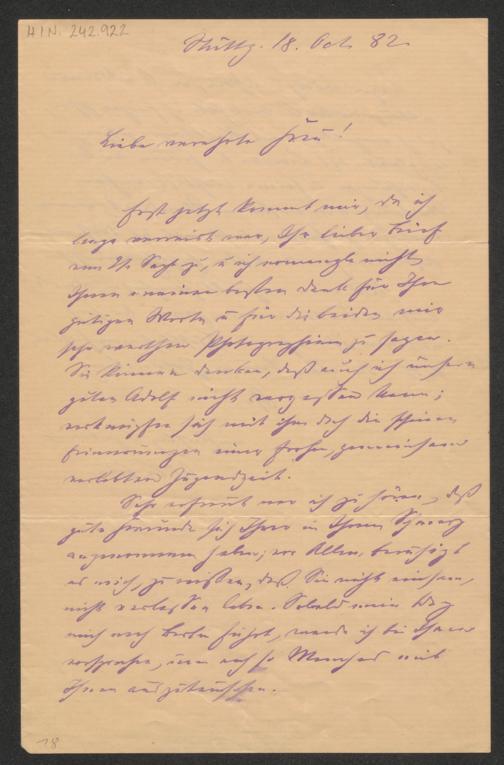 H.I.N. 242.922
Stuttg. 18. Oct. 82.
Liebe verehrte Frau!
Erst jetzt kommt mir, da ich
lange verreist war, Ihr lieber Brief
vom Sept. zu, u ich vermag nicht
Ihnen meinen besten Dank für Ihre
gütigen Worte u für die beiden mir
sehr werthen Photographieen zu sagen.
Sie können denken, daß auch ich unsern
guten Adolf nicht vergessen kann;
verknüpfen sich mit ihm doch die schönen
Erinnerungen einer frohen, gemeinsam
verlebten Jugendzeit.
Sehr erfreut war ich zu hören, daß
gute Freunde sich Ihrer in Ihrem Schmerz
angenommen haben; vor Allem beruhigt
es mich, zu wissen, daß Sie nicht einsam,
nicht verlassen leben. Sobald mein Weg
mich nach Berlin führt, werde ich bei Ihnen
vorsprechen, um noch so Manches mit
Ihnen auszutauschen.
18